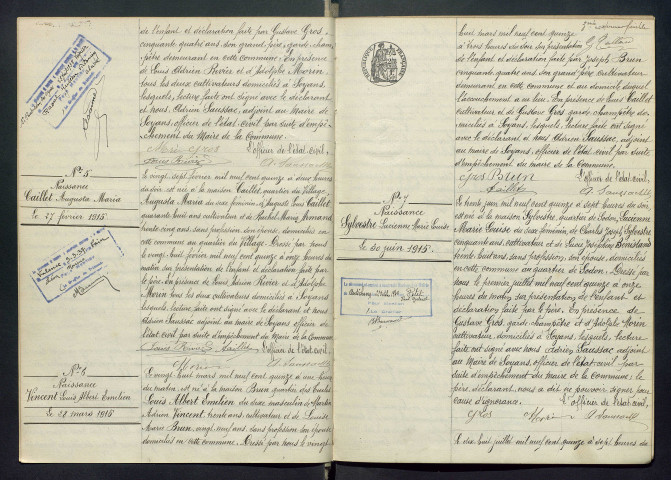 de l'enfant et déclaration faite par Gustave Gros,
cinquante quatre ans son grand père, garde cham-
pêtre demeurant en cette commune. En présence
de Louis Adrien Rivier et d'Adolphe Morin
tous les deux cultivateurs domiciliés à Soyans,
lesquels, lecture faite ont signé avec le déclarant
et nous Adrien Saussac, adjoint au maire de
Soyans, officier de l'état civil par suite d'empê-
chement du Maire de la Commune.
L'officier de l'état civil,
N° 5
Naissance
Caillet Augusta Maria
le 27 février 1915
Le vingt sept février mil neuf cent quinze à deux heures
du soir est née à la maison Caillet, quartier du Village,
Augusta Maria du sexe féminin, de Louis Caillet
quarante huit ans cultivateur et de Rachel Mary Armand
trente cinq ans, sans profession son épouse, domiciliés en
cette commune au quartier du village. Dressé par nous le
vingt huit février mil neuf cent quinze à onze heures du
matin sur présentation de l'enfant et déclaration faite par
le père. En présence de Louis Adrien Rivier et d'Adolphe
Morin tous les deux cultivateurs, domiciliés à Soyans
lesquels, lecture faite, ont signé avec le déclarant et nous
Adrien Saussac adjoint au maire de Soyans officier de
l'état civil par suite d'empêchement du Maire de la Commune
L'officier de l'état civil,
N° 6
Naissance
Vincent Louis Albert Emilien
le 28 mars 1915
Le vingt huit mars mil neuf cent quinze à une heure
du matin, est né à la maison Brun quartier des
Louis Albert Emilien du sexe masculin de
Adrien Vincent, trente ans, cultivateur et de Louise
Marie Brun, vingt neuf ans, sans profession son épouse
domiciliés en cette commune. Dressé par nous le vingt
huit mars mil neuf cent quinze
à trois heures du soir sur présentation
de l'enfant et déclaration faite par Joseph Brun
cinquante quatre ans son grand père cultivateur
demeurant en cette commune et au domicile duquel
l'accouchement a eu lieu. En présence de Louis Caillet
cultivateur et de Gustave Gros garde champêtre do-
miciliés à Soyans, lesquels, lecture faite ont signé
avec le déclarant et nous Adrien Saussac, adjoint
au maire de Soyans, officier de l'état civil par suite
d'empêchement du maire de la Commune.
L'officier de l'état civil,
Gros Brun
Caillet
N° 7
Naissance
Sylvestre Lucienne Marie Louise
le 30 juin 1915
Le trente juin mil neuf cent quinze à sept heures du soir,
est née à la maison Sylvestre, quartier de Lodon, Lucienne
Marie Louise du sexe féminin de Charles Joseph Sylvestre
cinquante ans, cultivateur et de Lucie Joséphine
trente huit ans, sans profession, son épouse, domiciliés
en cette commune au quartier de Lodon. Dressé par
nous le premier juillet mil neuf cent quinze à onze
heures du matin, sur présentation de l'enfant et
déclaration faite par le père. En présence de
Gustave Gros, garde-champêtre et d'Adolphe Morin
cultivateur domiciliés à Soyans, lesquels, lecture
faite ont signé avec nous Adrien Saussac adjoint
au Maire de Soyans, officier de l'état civil par
suite d'empêchement du maire de la Commune; le
père, déclarant nous a dit ne pouvoir signer pour
cause d'ignorance.
L'officier de l'état civil,
Gros Morin A. Saussac
Le dix huit juillet mil neuf cent quinze à sept heures du